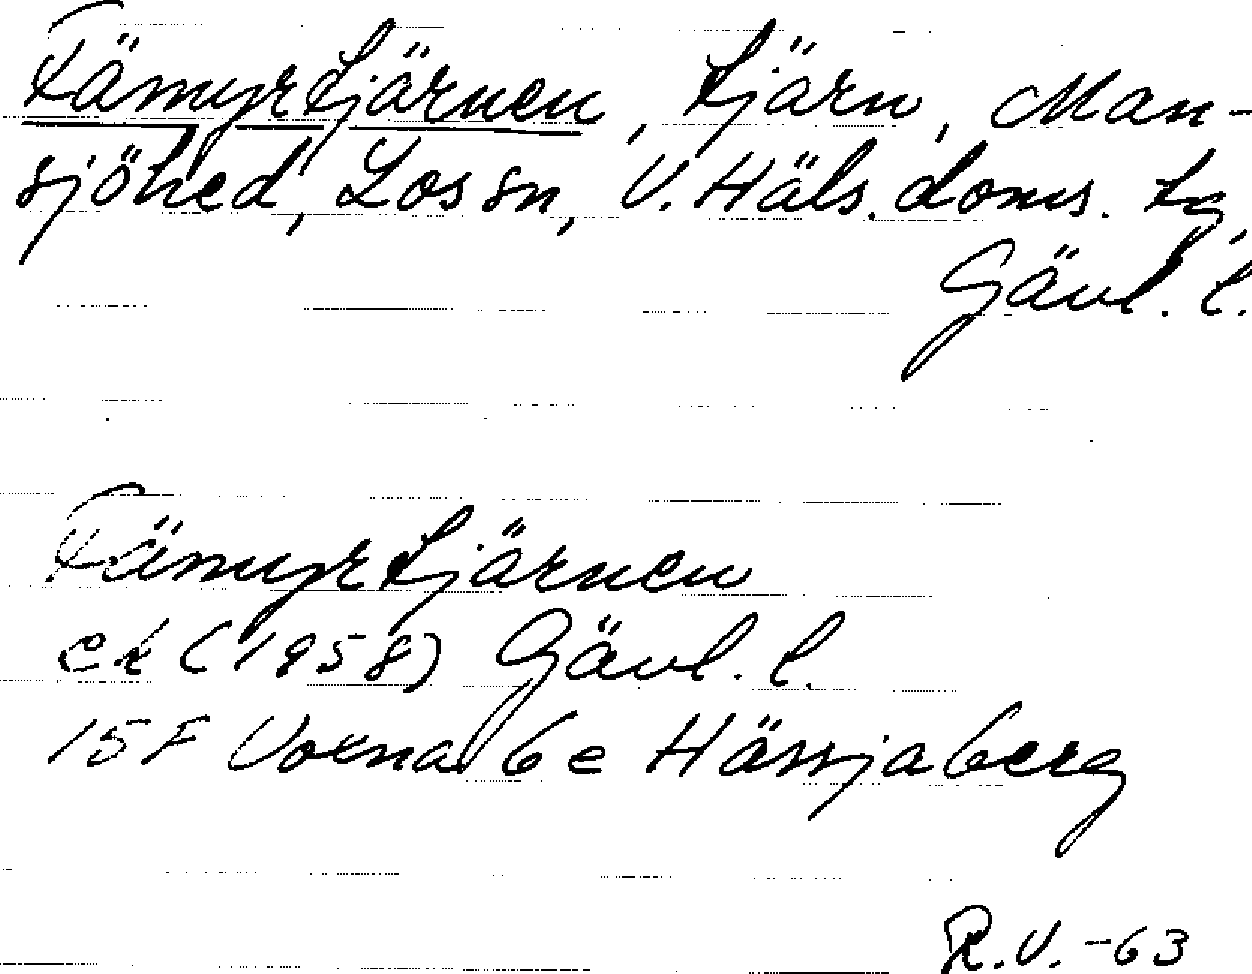 Fämyrtjärnen, tjärn, Man-
sjöhed, Los sn, V. Häls. doms. tg,
Gävl. l.
Fämyrtjärnen
ek (1958) Gävl. l.
15F Voxna 6e Hässjaberg
R.V. -63